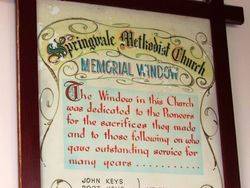 Springvale Methodist Church
MEMORIAL WINDOW
The Window in this Church
was dedicated to the Pioneers
for the sacrifices they made
and to those following on who
gave outstanding service for
many years ............
JOHN KEYS